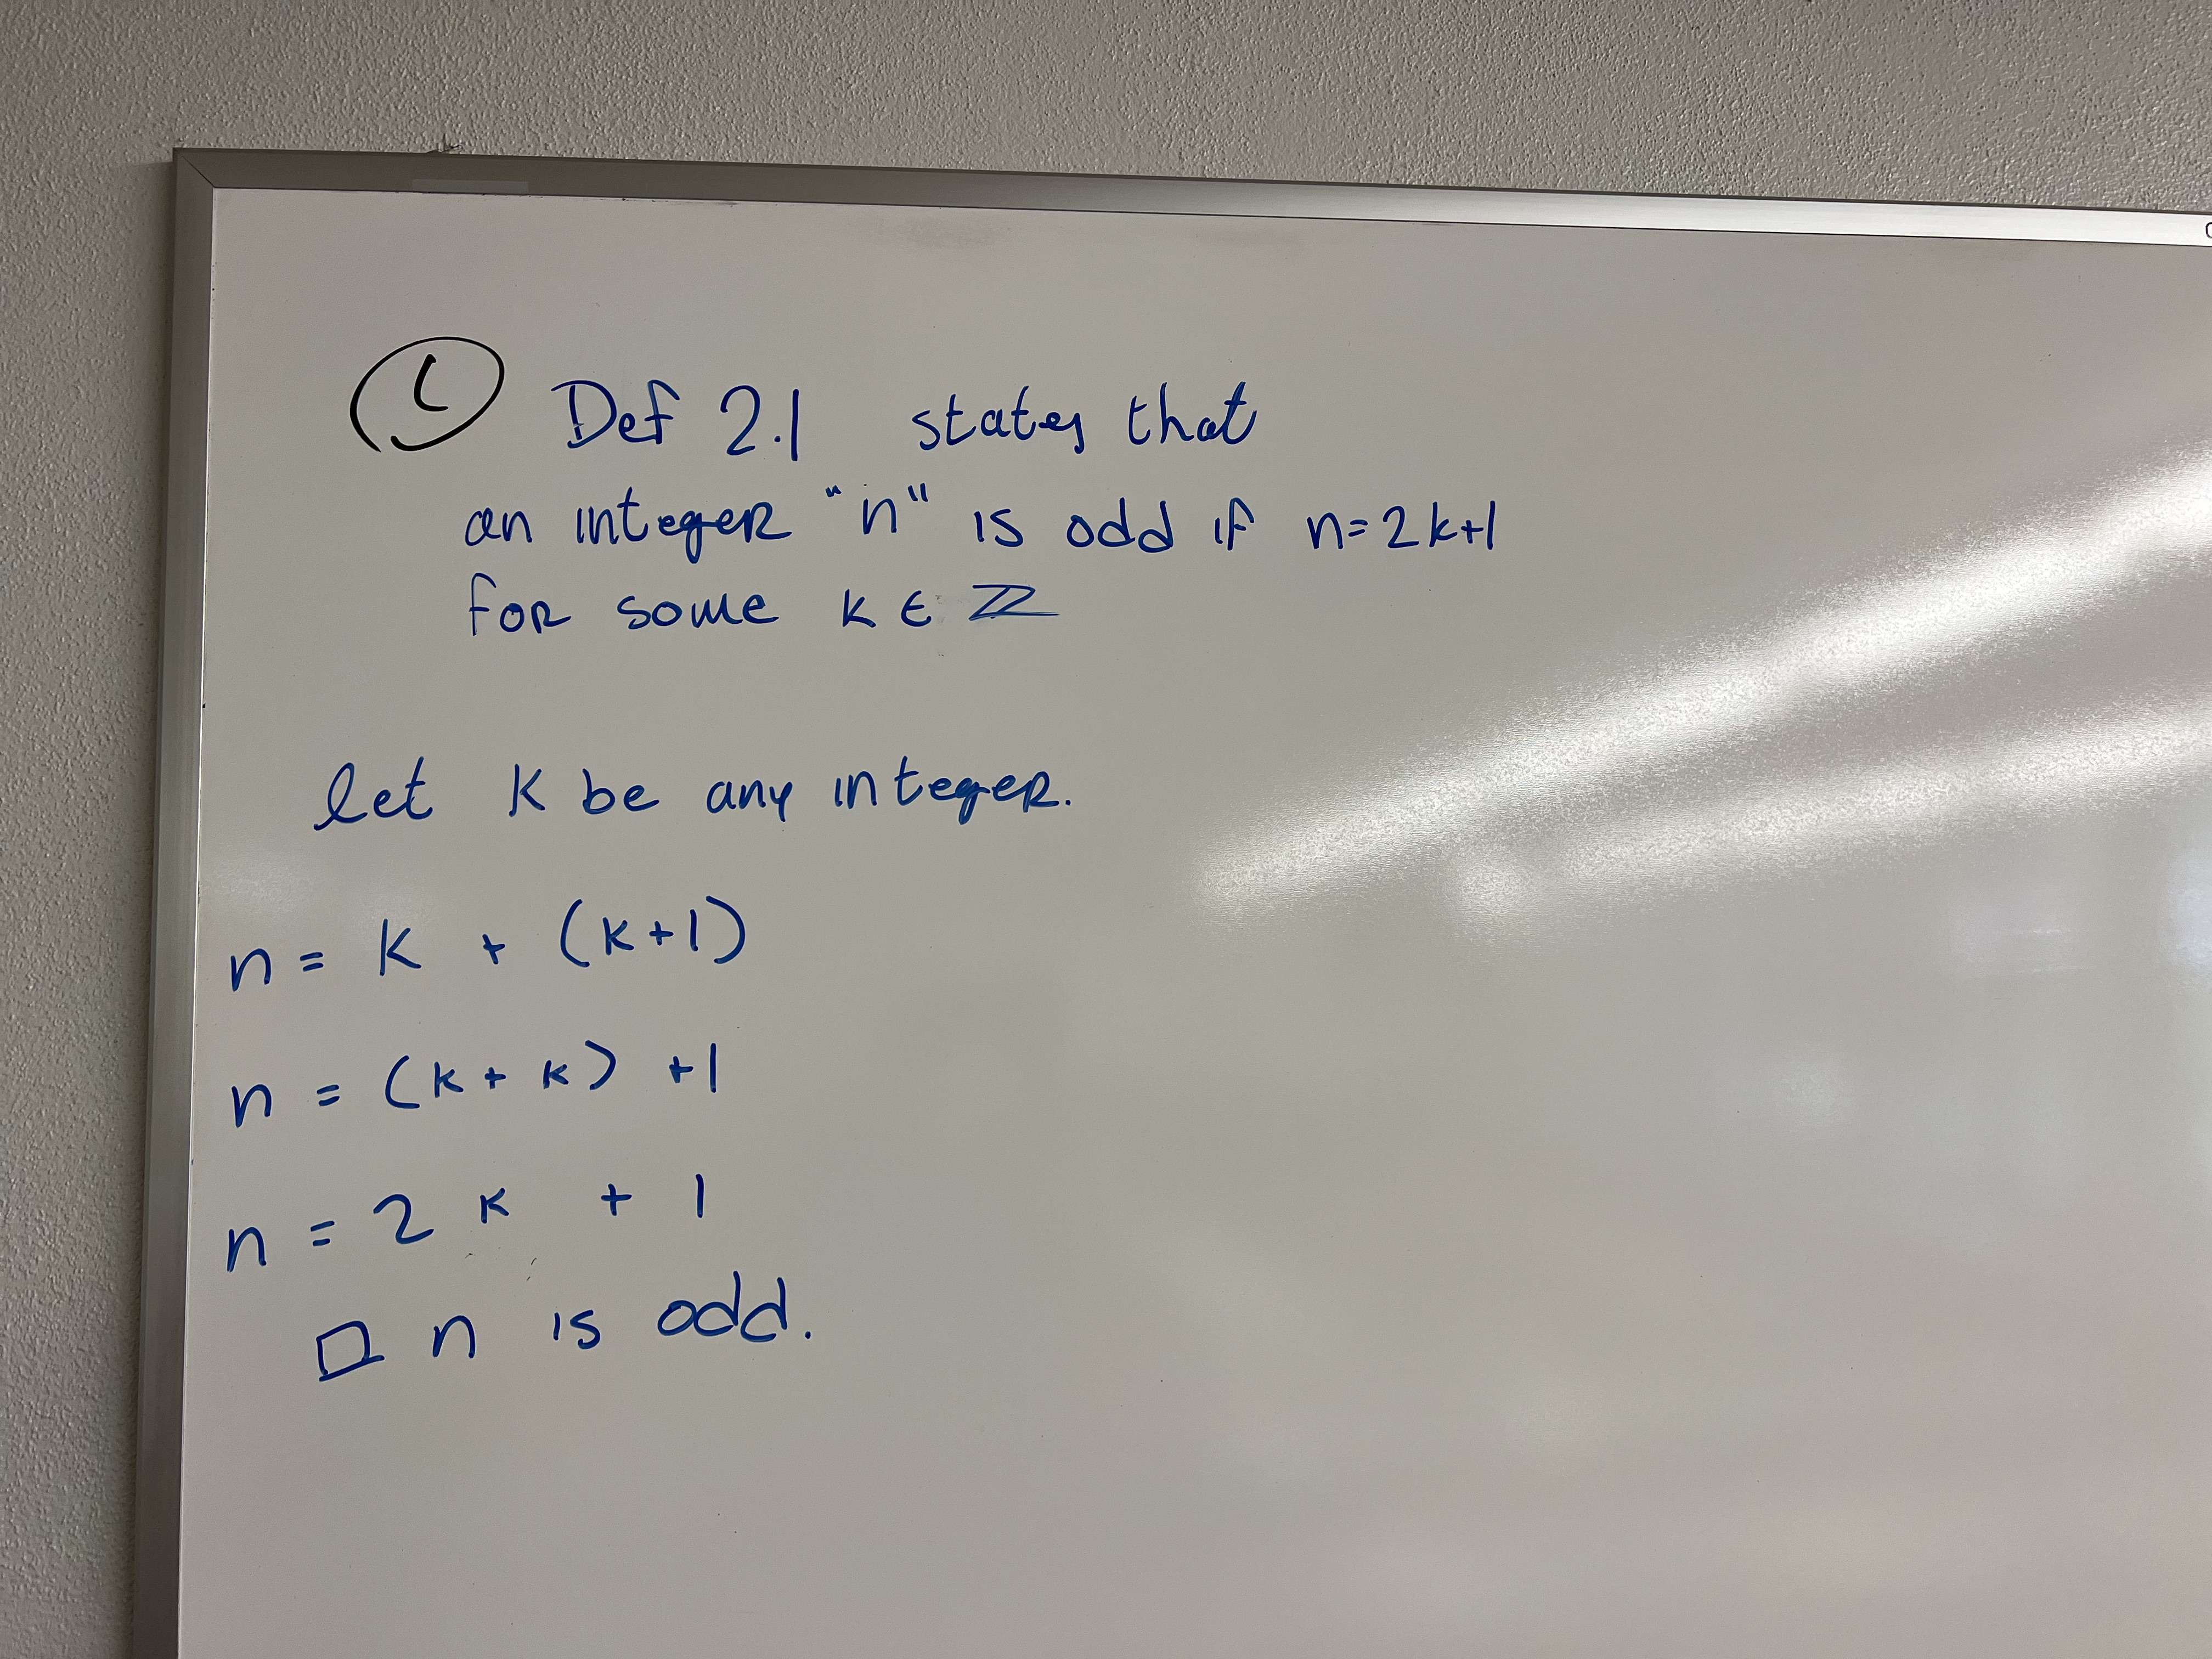 Def 2.1 states that
an integer "n" is odd if n=2k+1
for some k ∈ ℤ
let k be any integer.
n = k + (k+1)
n = (k + k) +1
n = 2k + 1
□ n is odd.